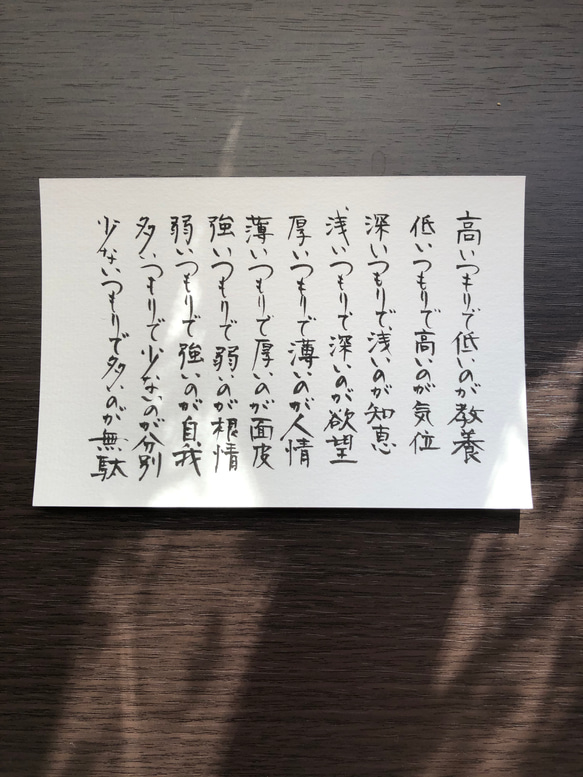 高いつもりで低いのが教養
低いつもりで高いのが気位
深いつもりで浅いのが知恵
浅いつもりで深いのが欲望
厚いつもりで薄いのが人情
薄いつもりで厚いのが面皮
強いつもりで弱いのが根情
弱いつもりで強いのが自我
多いつもりで少ないのが分別
少ないつもりで多いのが無駄